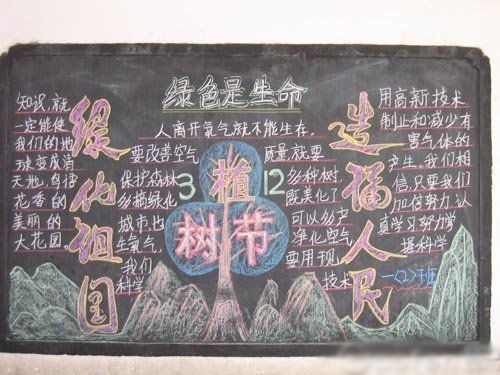 绿色是生命
绿化祖国
造福人民
知识,就
一定能使
我们的地
球变成满
天地,鸟语
花香的
美丽的
大花园
人离开氧气就不能生存,
要改善空气
质量,就要
保护森林
多种树,
多搞绿化
既美化了
城市,也
可以多产
生氧气,
净化空气
我们
要用现
科学
技术
3 12
植
树节
用高新技术
制止和减少有
害气体的
产生,我们相
信,只要我们
加倍努力,认
真学习努力学
握科学
一〈2〉班